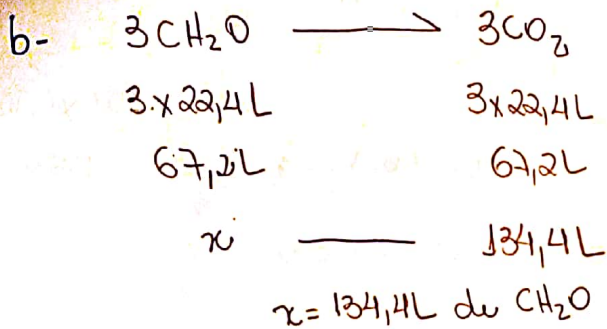 b- 3CH₂O ⟶ 3CO₂
3.x22,4L 3x22,4L
67,2L 67,2L
x — 134,4L
x= 134,4L de CH₂O